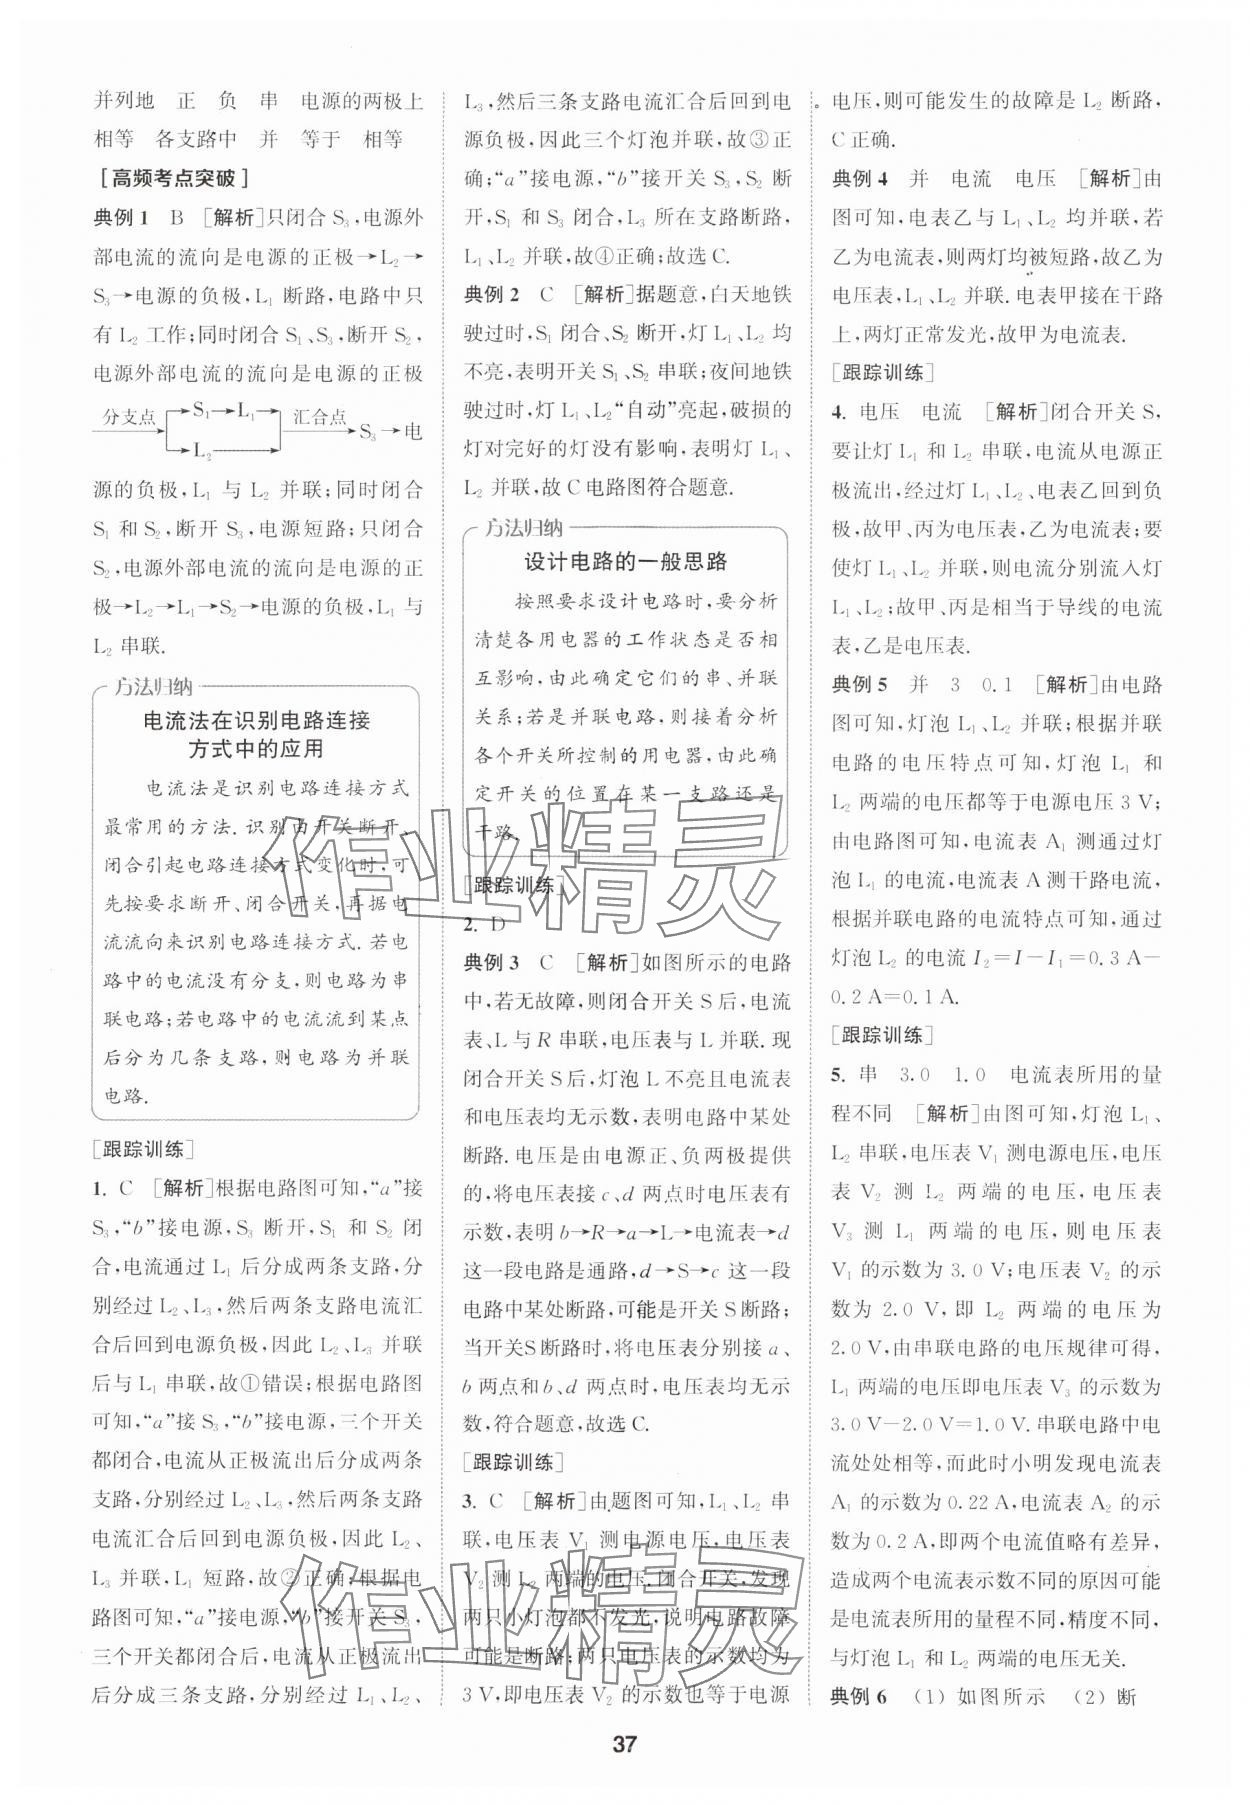 并列地　正　负　串　电源的两极上
相等　各支路中　并　等于　相等
[高频考点突破]
典例1　B　[解析]只闭合S₃,电源外
部电流的流向是电源的正极→L₂→
S₃→电源的负极,L₁断路,电路中只
有L₂工作;同时闭合S₁、S₃,断开S₂,
电源外部电流的流向是电源的正极
分支点 S₁→L₁ 汇合点
L₂ S₃→电
源的负极,L₁与L₂并联;同时闭合
S₁和S₂,断开S₃,电源短路;只闭合
S₂,电源外部电流的流向是电源的正
极→L₂→L₁→S₂→电源的负极,L₁与
L₂串联.
方法归纳
电流法在识别电路连接
方式中的应用
电流法是识别电路连接方式
最常用的方法.识别由开关断开、
闭合引起电路连接方式变化时,可
先按要求断开、闭合开关,再据电
流流向来识别电路连接方式.若电
路中的电流没有分支,则电路为串
联电路;若电路中的电流流到某点
后分为几条支路,则电路为并联
电路.
[跟踪训练]
1. C　[解析]根据电路图可知,“a”接
S₃,“b”接电源,S₃断开,S₁和S₂闭
合,电流通过L₁后分成两条支路,分
别经过L₂、L₃,然后两条支路电流汇
合后回到电源负极,因此L₂、L₃并联
后与L₁串联,故①错误;根据电路图
可知,“a”接S₃,“b”接电源,三个开关
都闭合,电流从正极流出后分成两条
支路,分别经过L₂、L₃,然后两条支路
电流汇合后回到电源负极,因此L₂、
L₃并联,L₁短路,故②正确;根据电
路图可知,“a”接电源,“b”接开关S₃,
三个开关都闭合后,电流从正极流出
后分成三条支路,分别经过L₁、L₂、
L₃,然后三条支路电流汇合后回到电
源负极,因此三个灯泡并联,故③正
确;“a”接电源,“b”接开关S₃,S₂断
开,S₁和S₃闭合,L₃所在支路断路,
L₁、L₂并联,故④正确;故选C.
典例2　C　[解析]据题意,白天地铁
驶过时,S₁闭合、S₂断开,灯L₁、L₂均
不亮,表明开关S₁、S₂串联;夜间地铁
驶过时,灯L₁、L₂“自动”亮起,破损的
灯对完好的灯没有影响,表明灯L₁、
L₂并联,故C电路图符合题意.
方法归纳
设计电路的一般思路
按照要求设计电路时,要分析
清楚各用电器的工作状态是否相
互影响,由此确定它们的串、并联
关系;若是并联电路,则接着分析
各个开关所控制的用电器,由此确
定开关的位置在某一支路还是
干路.
[跟踪训练]
2. D
典例3　C　[解析]如图所示的电路
中,若无故障,则闭合开关S后,电流
表、L与R串联,电压表与L并联.现
闭合开关S后,灯泡L不亮且电流表
和电压表均无示数,表明电路中某处
断路.电压是由电源正、负两极提供
的,将电压表接c、d两点时电压表有
示数,表明b→R→a→L→电流表→d
这一段电路是通路,d→S→c这一段
电路中某处断路,可能是开关S断路;
当开关S断路时,将电压表分别接a、
b两点和b、d两点时,电压表均无示
数,符合题意,故选C.
[跟踪训练]
3. C　[解析]由题图可知,L₁、L₂串
联,电压表V₁测电源电压,电压表
V₂测L₂两端的电压.闭合开关,发现
两只小灯泡都不发光,说明电路故障
可能是断路;两只电压表的示数均为
3 V,即电压表V₂的示数也等于电源
电压,则可能发生的故障是L₂断路,
C正确.
典例4　并　电流　电压　[解析]由
图可知,电表乙与L₁、L₂均并联,若
乙为电流表,则两灯均被短路,故乙为
电压表,L₁、L₂并联.电表甲接在干路
上,两灯正常发光,故甲为电流表.
[跟踪训练]
4. 电压　电流　[解析]闭合开关S,
要让灯L₁和L₂串联,电流从电源正
极流出,经过灯L₁、L₂、电表乙回到负
极,故甲、丙为电压表,乙为电流表;要
使灯L₁、L₂并联,则电流分别流入灯
L₁、L₂;故甲、丙是相当于导线的电流
表,乙是电压表.
典例5　并　3　0.1　[解析]由电路
图可知,灯泡L₁、L₂并联;根据并联
电路的电压特点可知,灯泡L₁和
L₂两端的电压都等于电源电压3 V;
由电路图可知,电流表A₁测通过灯
泡L₁的电流,电流表A测干路电流,
根据并联电路的电流特点可知,通过
灯泡L₂的电流I₂=I－I₁=0.3 A－
0.2 A=0.1 A.
[跟踪训练]
5. 串　3.0　1.0　电流表所用的量
程不同　[解析]由图可知,灯泡L₁、
L₂串联,电压表V₁测电源电压,电压
表V₂测L₂两端的电压,电压表
V₃测L₁两端的电压,则电压表
V₁的示数为3.0 V;电压表V₂的示
数为2.0 V,即L₂两端的电压为
2.0 V,由串联电路的电压规律可得,
L₁两端的电压即电压表V₃的示数为
3.0 V－2.0 V=1.0 V.串联电路中电
流处处相等,而此时小明发现电流表
A₁的示数为0.22 A,电流表A₂的示
数为0.2 A,即两个电流值略有差异,
造成两个电流表示数不同的原因可能
是电流表所用的量程不同,精度不同,
与灯泡L₁和L₂两端的电压无关.
典例6　(1)如图所示　(2)断
37
作业精灵
作业精灵